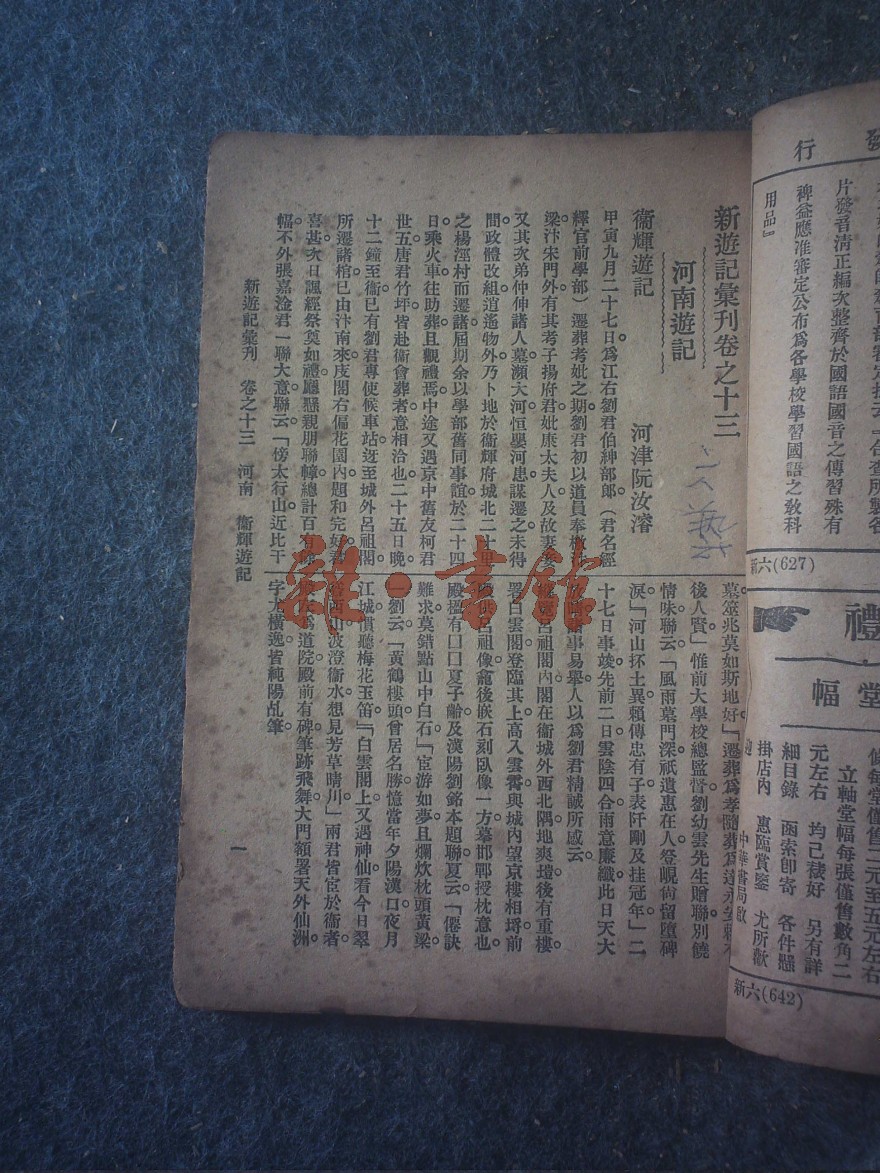 新遊記彙刊卷之十三
河南遊記
衞輝遊記 河津阮汝濬
甲寅九月二十七日爲江右劉君伯紳部郎（君名經
繹官前學部）遷葬考妣之期劉君初以道員奉檄
梁汴宋門外有其考子揚府君妣康太夫人及故妻
又其次弟仲伸諸人墓瀕大河恒嬰河患謀遷之未得
間政體改組逍遙物外乃卜地於衞輝府城北二十里
之楊涇村而遷諸屆期余以學部舊同事誼於二十四
日乘火車往助葬且觀禮焉中途又遇京中舊友柯君
世五唐君竹坪皆赴衞會葬者意相洽也二十五日晚
十二鐘至衞已有劉君專使候車站迓至城外呂祖閣
所遷諸棺已由汴南來庋閣右偏花園內題和完好
喜甚次日諷經祭奠如禮廳懸親朋聯幛總計百有餘
幅不外張嘉淦君一聯大意聯云「傍太行山近比干
墓筮兆莫如斯地好」「遷葬爲孝隨葬爲達
後人賢」惟前大學校總監督劉幼雲先生贈聯別饒
情味聯云「風雨墓門深祇遺惠在人登峴尙留墮碑
淚」「河山抔土異賴傳忠有子表阡剛及挂冠年」二
十七日事竣先前二日雲陰四合雨意廉纖此日天大
事易舉人以爲劉君精誠所感云
呂祖閣內閣在衞城外西北隅地爽塏後有重樓
署白雲閣登臨其上高入雲霄與城內望京樓相埒前
呂祖像龕後嵌石刻臥像一方摹邯鄲授枕意也
殿楹有口口夏子齡及漢陽劉銘本題聯夏云「僊訣
難求莫錯點山中白石」「宦游如夢且爛炊枕頭黃粱
一劉云「黃鶴樓頭曾居名勝憶當年夕陽漢口夜月
江城慣聽梅花玉笛」「白雲閣上又遇神仙看今日翠
西山波澄衞水想見芳草晴川」兩君皆宦於衞者
爲道院殿前有碑筆跡飛舞大門額署天外仙洲
字尤橫逸皆純陽乩筆
新遊記彙刊 卷之十三 河南 衞輝遊記
一
雜·書館
發
行
片發音淸正編次整齊於國語國音之傳習殊有
裨益應准審定公布爲各學校學習國語之敎科
用品』
新六(627)
禮
堂幅
每堂僅售二元至五元左右
立軸堂幅每張僅售數角二
元左右 均已裱好 另有詳
細目錄 函索卽寄 各件懸
掛店內 惠臨賞鑒 尤所歡
中華書局啟
新六(642)